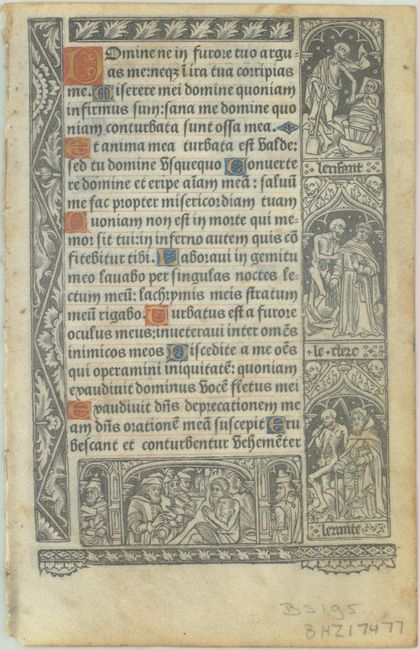 Domine ne in furore tuo argu-
as me: neqz i ira tua corripias
me. Miserere mei domine quoniam
infirmus sum: sana me domine quo
niam conturbata sunt ossa mea.
Et anima mea turbata est valde:
sed tu domine vsquequo Conuerte
re domine et eripe aīam meā: saluū
me fac propter misericordiam tuam
Quoniam non est in morte qui me-
mor sit tui: in inferno autem quis cō
fitebitur tibi. Laboraui in gemitu
meo lauabo per singulas noctes le-
ctum meū: lachrymis meis stratum
meū rigabo. Turbatus est a furore
oculus meus: inueteraui inter omēs
inimicos meos Discedite a me oēs
qui operamini iniquitatē: quoniam
expaudiuit dominus vocē fletus mei
Expaudiuit dn̄s deprecationem me
am dn̄s orationē meā suscepit Eru
bescant et conturbentur vehemēter
lenfant
le clerc
lermite
BS195
BHZ17477